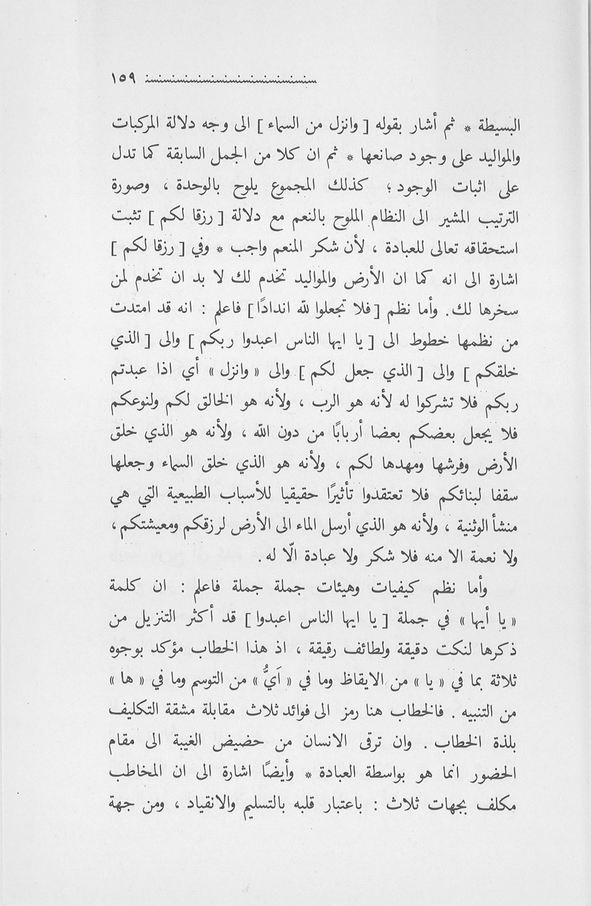 ١٥٩
البسيطة * ثم أشار بقوله [ وانزل من السماء ] الى وجه دلالة المركبات
والمواليد على وجود صانعها * ثم ان كلا من الجمل السابقة كما تدل
على اثبات الوجود ؛ كذلك المجموع يلوح بالوحدة ، وصورة
الترتيب المشير الى النظام الملوح بالنعم مع دلالة [ رزقا لكم ] تثبت
استحقاقه تعالى للعبادة ، لأن شكر المنعم واجب * وفي [ رزقا لكم ]
اشارة الى انه كما ان الأرض والمواليد تخدم لك لا بد ان تخدم لمن
سخرها لك . وأما نظم [ فلا تجعلوا لله اندادًا ] فاعلم : انه قد امتدت
من نظمها خطوط الى [ يا ايها الناس اعبدوا ربكم ] والى [ الذي
خلقكم ] والى [ الذي جعل لكم ] والى « وانزل » أي اذا عبدتم
ربكم فلا تشركوا له لأنه هو الرب ، ولأنه هو الخالق لكم ولنوعكم
فلا يجعل بعضكم بعضا أربابًا من دون الله ، ولأنه هو الذي خلق
الأرض وفرشها ومهدها لكم ، ولأنه هو الذي خلق السماء وجعلها
سقفا لبنائكم فلا تعتقدوا تأثيرًا حقيقيا للأسباب الطبيعية التي هي
منشأ الوثنية ، ولأنه هو الذي أرسل الماء الى الأرض لرزقكم ومعيشتكم ،
ولا نعمة الا منه فلا شكر ولا عبادة الّا له .
وأما نظم كيفيات وهيئات جملة جملة فاعلم : ان كلمة
« يا أيها » في جملة [ يا ايها الناس اعبدوا ] قد أكثر التنزيل من
ذكرها لنكت دقيقة ولطائف رقيقة ، اذ هذا الخطاب مؤكد بوجوه
ثلاثة بما في « يا » من الايقاظ وما في « اَيُّ » من التوسم وما في « ها »
من التنبيه . فالخطاب هنا رمز الى فوائد ثلاث مقابلة مشقة التكليف
بلذة الخطاب . وان ترقى الانسان من حضيض الغيبة الى مقام
الحضور انما هو بواسطة العبادة * وأيضًا اشارة الى ان المخاطب
مكلف بجهات ثلاث : باعتبار قلبه بالتسليم والانقياد ، ومن جهة